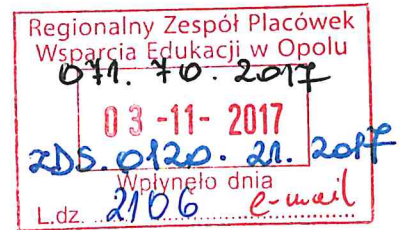 Regionalny Zespół Placówek
Wsparcia Edukacji w Opolu
071. 70. 2017
03 -11- 2017
ZDS. 0120. 21. 2017
Wpłynęło dnia
L.dz. 2106 e-mail